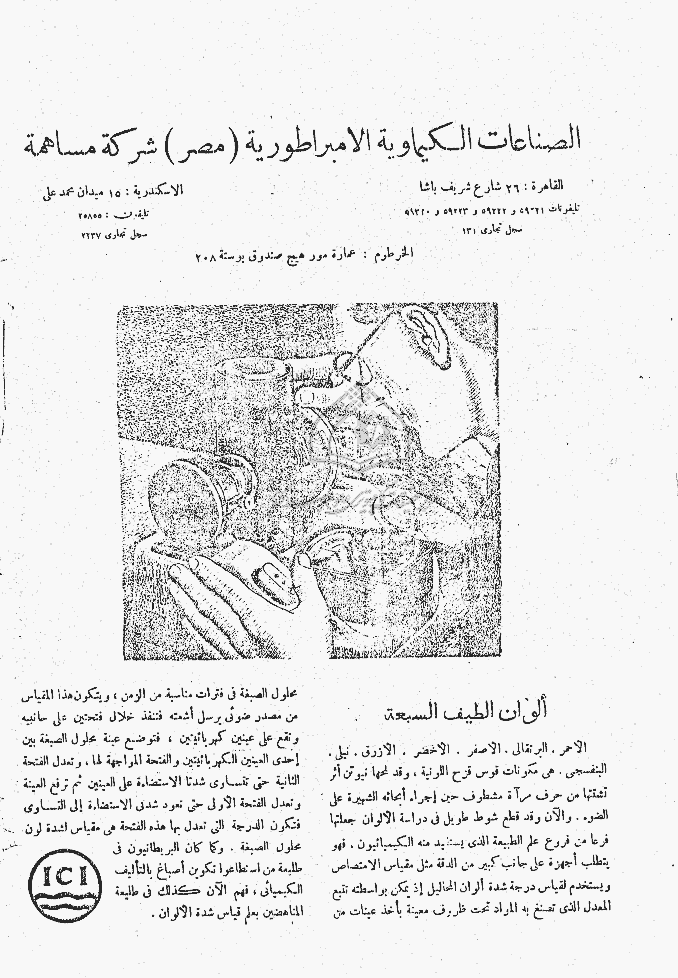 الصناعات الكيماوية الامبراطورية (مصر) شركة مساهمة
القاهرة : ٢٦ شارع شريف باشا
تليفونات ٥٩٢٢١ و ٥٩٢٢٢ و ٥٩٢٢٣ و
سجل تجارى ١٣١
الاسكندرية : ١٥ ميدان محمد على
تليفون : ٢٥٨٥٥
سجل تجارى ٢٢٣٧
الخرطوم : عمارة مور هيج صندوق بوستة ٢٠٨
ألوان الطيف السبعة
الأحمر . البرتقالى . الأصفر . الأخضر . الأزرق . نيلى .
البنفسجى . هى مكونات قوس قزح اللونية ، وقد لمحها نيوتن أثر
تشتتها من حرف مرآة مشطوف حين إجراء أبحاثه الشهيرة على
الضوء . والآن وقد قطع شوط طويل فى دراسة الألوان جعلها
فرعا من فروع علم الطبيعة الذى يستفيد منه الكيميائيون . فهو
يتطلب أجهزة على جانب كبير من الدقة مثل مقياس الامتصاص
ويستخدم لقياس درجة شدة ألوان المحاليل إذ يمكن بواسطته تتبع
المعدل الذى تصبغ به المواد تحت ظروف معينة بأخذ عينات من
محلول الصبغة فى فترات مناسبة من الزمن ، ويتكون هذا المقياس
من مصدر ضوئى يرسل أشعته فتنفذ خلال فتحتين على جانبيه
وتقع على عينين كهربائيتين ، فتوضع عينة محلول الصبغة بين
إحدى العينين الكهربائيتين والفتحة المواجهة لها ، وتعدل الفتحة
الثانية حتى تتساوى شدتا الاستضاءة على العينين ثم ترفع العينة
وتعدل الفتحة الأولى حتى تعود شدتى الاستضاءة إلى التساوى
فتكون الدرجة التى تعدل بها هذه الفتحة هى مقياس لشدة لون
محلول الصبغة . وكما كان البريطانيون فى
طليعة من استطاعوا تكوين أصباغ بالتأليف
الكيميائى ، فهم الآن كذلك فى طليعة
الناهضين بعلم قياس شدة الألوان .
ICI